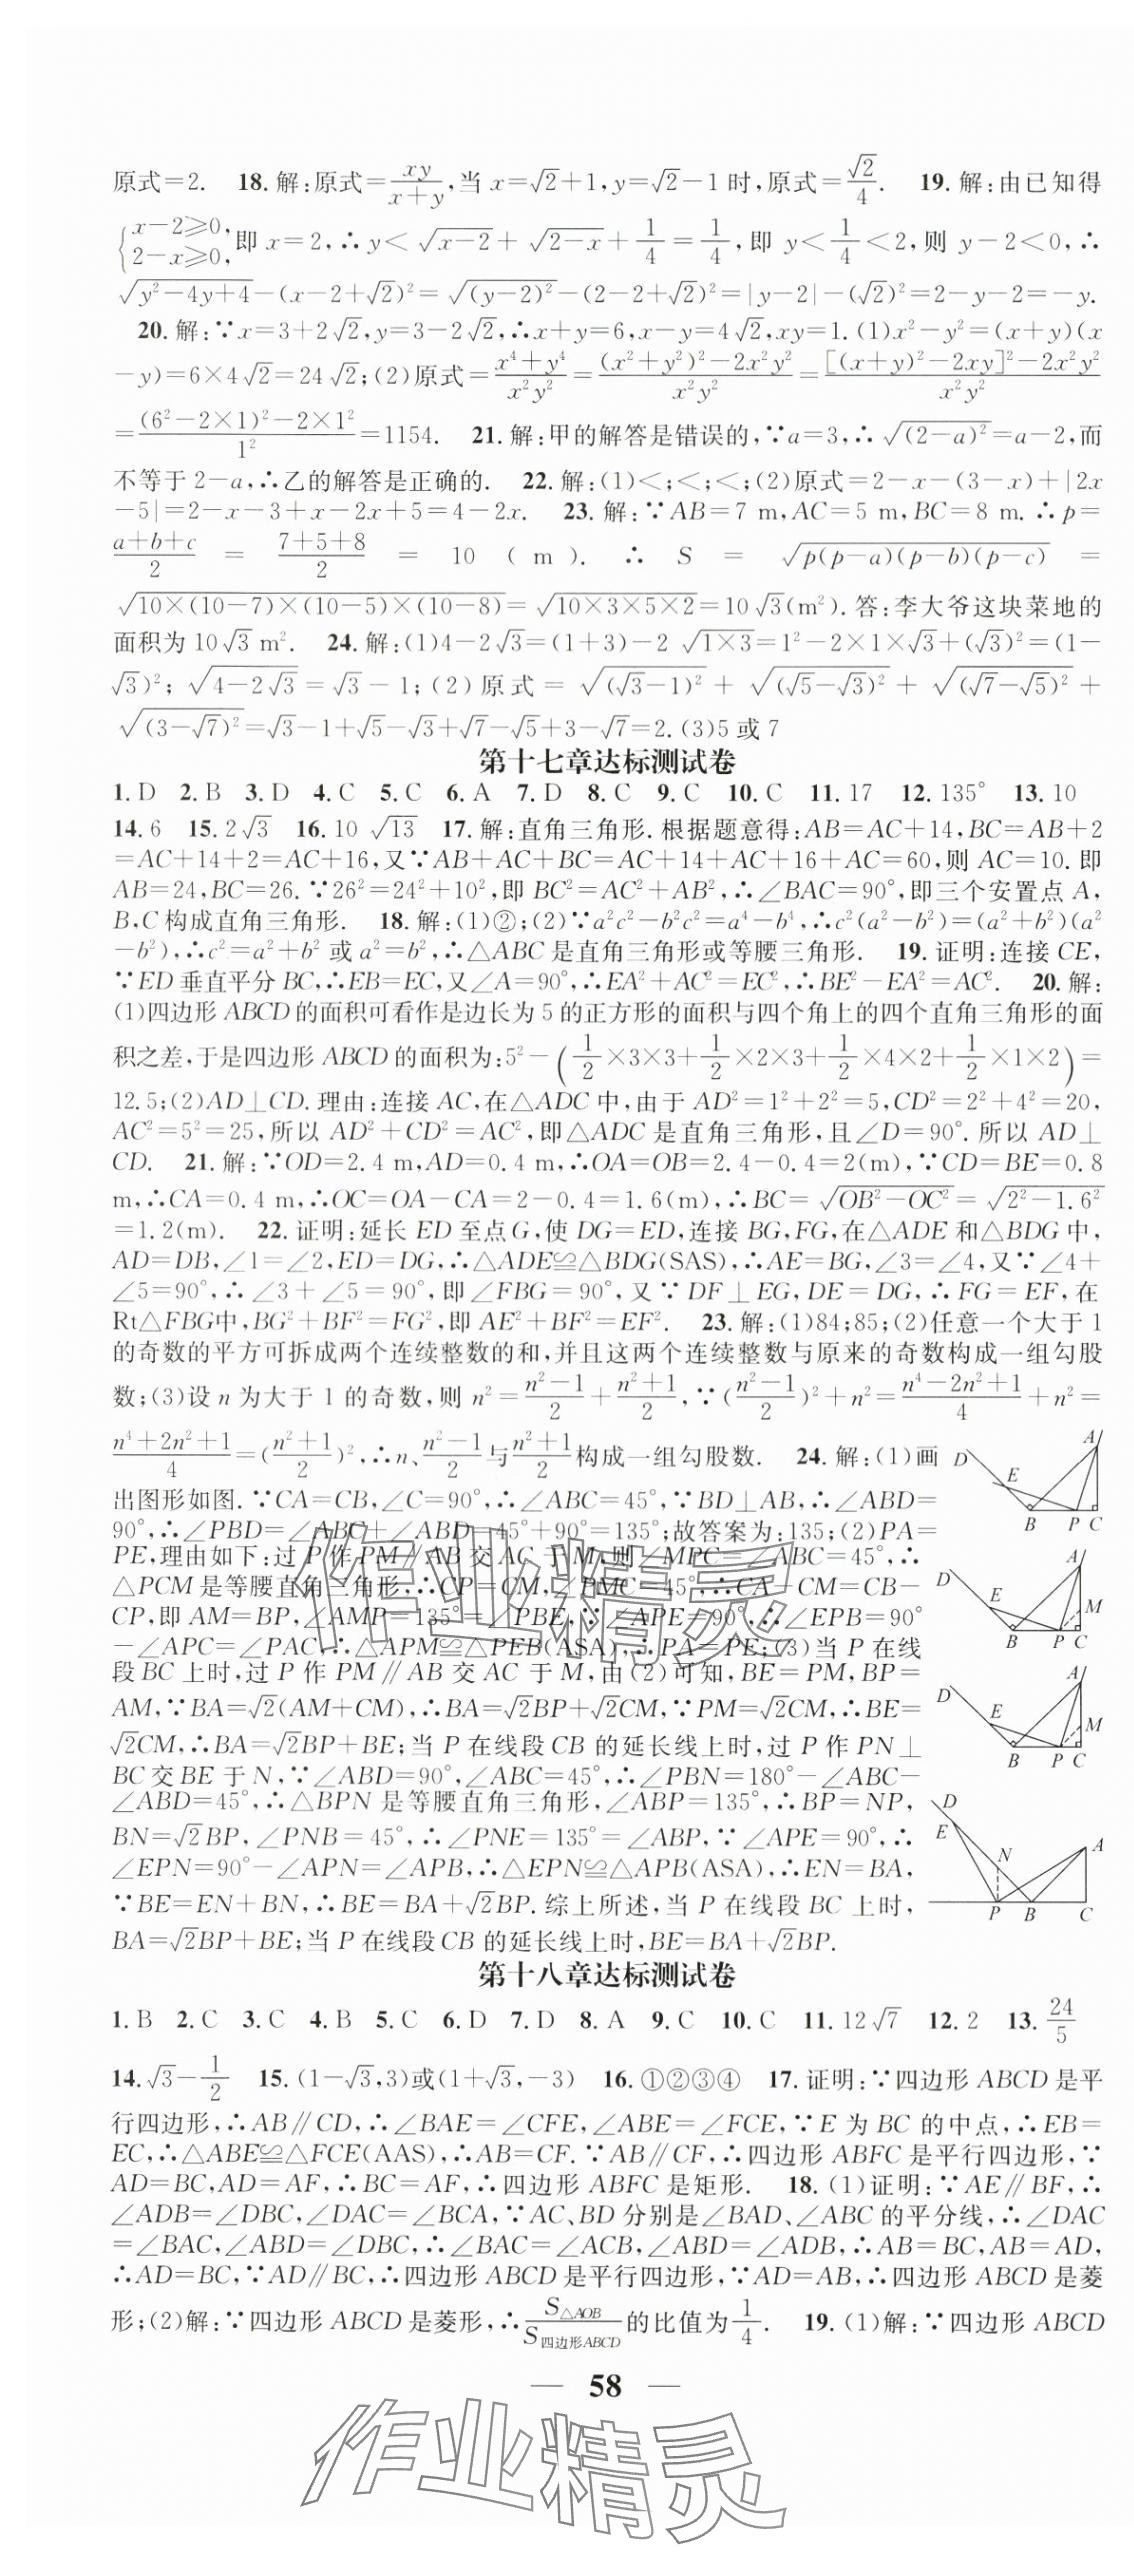 原式=2. 18.解:原式=xy/(x+y),当 x=√2+1,y=√2-1 时,原式=√2/4. 19.解:由已知得
{x-2≥0, 2-x≥0, 即 x=2,∴y<√(x-2)+√(2-x)+1/4=1/4,即 y<1/4<2,则 y-2<0,∴
√(y²-4y+4)-(x-2+√2)²=√((y-2)²)-(2-2+√2)²=|y-2|-(√2)²=2-y-2=-y.
20.解:∵x=3+2√2,y=3-2√2,∴x+y=6,x-y=4√2,xy=1.(1)x²-y²=(x+y)(x
-y)=6×4√2=24√2;(2)原式=(x⁴+y⁴)/(x²y²)=((x²+y²)²-2x²y²)/(x²y²)=([(x+y)²-2xy]²-2x²y²)/(x²y²)
=((6²-2×1)²-2×1²)/1²=1154. 21.解:甲的解答是错误的,∵a=3,∴√((2-a)²)=a-2,而
不等于 2-a,∴乙的解答是正确的. 22.解:(1)<;<;<;(2)原式=2-x-(3-x)+|2x
-5|=2-x-3+x-2x+5=4-2x. 23.解:∵AB=7 m,AC=5 m,BC=8 m.∴p=
(a+b+c)/2 = (7+5+8)/2 = 10 (m). ∴ S = √(p(p-a)(p-b)(p-c)) =
√(10×(10-7)×(10-5)×(10-8))=√(10×3×5×2)=10√3(m²).答:李大爷这块菜地的
面积为 10√3 m². 24.解:(1)4-2√3=(1+3)-2√(1×3)=1²-2×1×√3+(√3)²=(1-
√3)²;√(4-2√3)=√3-1;(2)原式=√((√3-1)²)+√((√5-√3)²)+√((√7-√5)²)+
√((3-√7)²)=√3-1+√5-√3+√7-√5+3-√7=2.(3)5 或 7
第十七章达标测试卷
1.D 2.B 3.D 4.C 5.C 6.A 7.D 8.C 9.C 10.C 11.17 12.135° 13.10
14.6 15.2√3 16.10 √13 17.解:直角三角形.根据题意得:AB=AC+14,BC=AB+2
=AC+14+2=AC+16,又∵AB+AC+BC=AC+14+AC+16+AC=60,则 AC=10.即
AB=24,BC=26.∵26²=24²+10²,即 BC²=AC²+AB²,∴∠BAC=90°,即三个安置点 A,
B,C 构成直角三角形. 18.解:(1)②;(2)∵a²c²-b²c²=a⁴-b⁴,∴c²(a²-b²)=(a²+b²)(a²
-b²),∴c²=a²+b² 或 a²=b²,∴△ABC 是直角三角形或等腰三角形. 19.证明:连接 CE,
∵ED 垂直平分 BC,∴EB=EC,又∠A=90°,∴EA²+AC²=EC²,∴BE²-EA²=AC². 20.解:
(1)四边形 ABCD 的面积可看作是边长为 5 的正方形的面积与四个角上的四个直角三角形的面
积之差,于是四边形 ABCD 的面积为:5²-(1/2×3×3+1/2×2×3+1/2×4×2+1/2×1×2)=
12.5;(2)AD⊥CD.理由:连接 AC,在△ADC 中,由于 AD²=1²+2²=5,CD²=2²+4²=20,
AC²=5²=25,所以 AD²+CD²=AC²,即△ADC 是直角三角形,且∠D=90°.所以 AD⊥
CD. 21.解:∵OD=2.4 m,AD=0.4 m,∴OA=OB=2.4-0.4=2(m),∵CD=BE=0.8
m,∴CA=0.4 m,∴OC=OA-CA=2-0.4=1.6(m),∴BC=√(OB²-OC²)=√(2²-1.6²)
=1.2(m). 22.证明:延长 ED 至点 G,使 DG=ED,连接 BG,FG,在△ADE 和△BDG 中,
AD=DB,∠1=∠2,ED=DG,∴△ADE≌△BDG(SAS),∴AE=BG,∠3=∠4,又∵∠4+
∠5=90°,∴∠3+∠5=90°,即∠FBG=90°,又∵DF⊥EG,DE=DG,∴FG=EF,在
Rt△FBG中,BG²+BF²=FG²,即 AE²+BF²=EF². 23.解:(1)84;85;(2)任意一个大于 1
的奇数的平方可拆成两个连续整数的和,并且这两个连续整数与原来的奇数构成一组勾股
数;(3)设 n 为大于 1 的奇数,则 n²=(n²-1)/2+(n²+1)/2,∵((n²-1)/2)²+n²=(n⁴-2n²+1)/4+n²=
(n⁴+2n²+1)/4=((n²+1)/2)²,∴n、(n²-1)/2与(n²+1)/2构成一组勾股数. 24.解:(1)画
出图形如图.∵CA=CB,∠C=90°,∴∠ABC=45°,∵BD⊥AB,∴∠ABD=
90°,∴∠PBD=∠ABC+∠ABD=45°+90°=135°;故答案为:135;(2)PA=
PE,理由如下:过 P 作 PM∥AB 交 AC 于 M,则∠MPC=∠ABC=45°,∴
△PCM 是等腰直角三角形,∴CP=CM,∠PMC=45°,∴CA-CM=CB-
CP,即 AM=BP,∠AMP=135°=∠PBE,∵∠APE=90°,∴∠EPB=90°
-∠APC=∠PAC,∴△APM≌△PEB(ASA),∴PA=PE;(3)当 P 在线
段 BC 上时,过 P 作 PM∥AB 交 AC 于 M,由(2)可知,BE=PM,BP=
AM,∵BA=√2(AM+CM),∴BA=√2BP+√2CM,∵PM=√2CM,∴BE=
√2CM,∴BA=√2BP+BE;当 P 在线段 CB 的延长线上时,过 P 作 PN⊥
BC 交 BE 于 N,∵∠ABD=90°,∠ABC=45°,∴∠PBN=180°-∠ABC-
∠ABD=45°,∴△BPN 是等腰直角三角形,∠ABP=135°,∴BP=NP,
BN=√2BP,∠PNB=45°,∴∠PNE=135°=∠ABP,∵∠APE=90°,∴
∠EPN=90°-∠APN=∠APB,∴△EPN≌△APB(ASA),∴EN=BA,
∵BE=EN+BN,∴BE=BA+√2BP.综上所述,当 P 在线段 BC 上时,
BA=√2BP+BE;当 P 在线段 CB 的延长线上时,BE=BA+√2BP.
D E A B P C
D E A M B P C
D E A M B P C
D E N A P B C
第十八章达标测试卷
1.B 2.C 3.C 4.B 5.C 6.D 7.D 8.A 9.C 10.C 11.12√7 12.2 13.24/5
14.√3-1/2 15.(1-√3,3)或(1+√3,-3) 16.①②③④ 17.证明:∵四边形 ABCD 是平
行四边形,∴AB∥CD,∴∠BAE=∠CFE,∠ABE=∠FCE,∵E 为 BC 的中点,∴EB=
EC,∴△ABE≌△FCE(AAS),∴AB=CF.∵AB∥CF,∴四边形 ABFC 是平行四边形,∵
AD=BC,AD=AF,∴BC=AF,∴四边形 ABFC 是矩形. 18.(1)证明:∵AE∥BF,∴
∠ADB=∠DBC,∠DAC=∠BCA,∵AC、BD 分别是∠BAD、∠ABC 的平分线,∴∠DAC
=∠BAC,∠ABD=∠DBC,∴∠BAC=∠ACB,∠ABD=∠ADB,∴AB=BC,AB=AD,
∴AD=BC,∵AD∥BC,∴四边形 ABCD 是平行四边形,∵AD=AB,∴四边形 ABCD 是菱
形;(2)解:∵四边形 ABCD 是菱形,∴S△AOB/S四边形ABCD的比值为1/4. 19.(1)解:∵四边形 ABCD
— 58 —
作业精灵
作业精灵